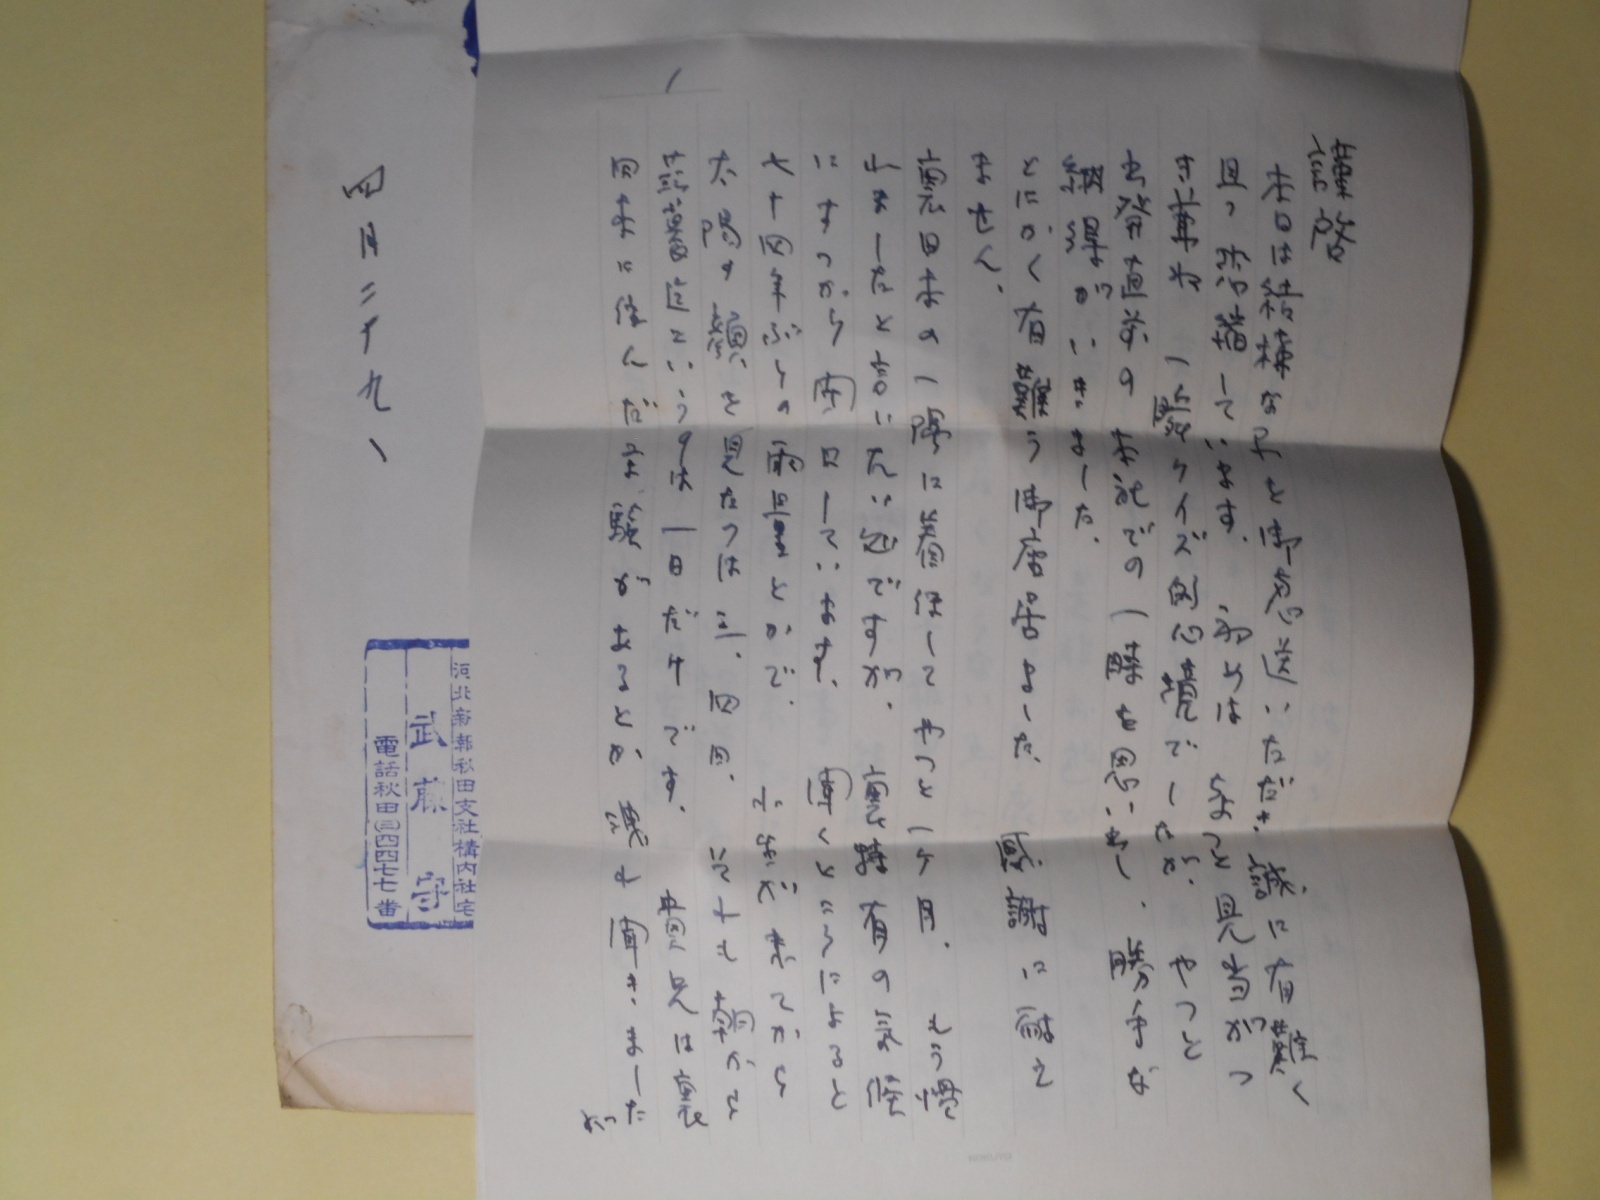 謹啓
本日は結構な品を御恵送いただき、誠に有難く
且つ恐縮しています。初めは ちょっと見当がつ
きかね 一瞬クイズ的心境でしたが、やっと
出発直前の 本社での一件を思い出し、勝手な
結構がいきました。
とにかく有難う御座居ました 感謝に耐え
ません。
裏日本の一隅に着任して やっと一ケ月。もう慣
れましたと言いたい処ですが、裏特有の気候
にすっかり閉口しています。聞くところによると
七十四年ぶりの雨量とかで、こちらが来てから
太陽が顔を見たのは三、四日、それも朝から
晩迄というのは一日だけです。 貴兄は裏
日本に住んだ経験があるとか 聞きました
が
1
四月二十九日
河北新報秋田支社構内社宅
武藤 守
電話秋田(三)四四七七番
KOKUYO